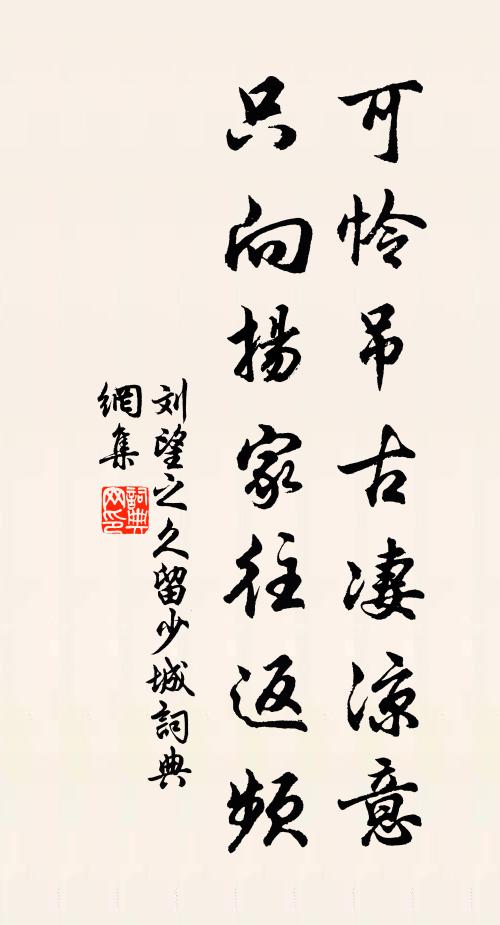 可怜吊古凄凉意
只向揚家往返頻
刘望之久留少城詞典
網集
詞典
网印